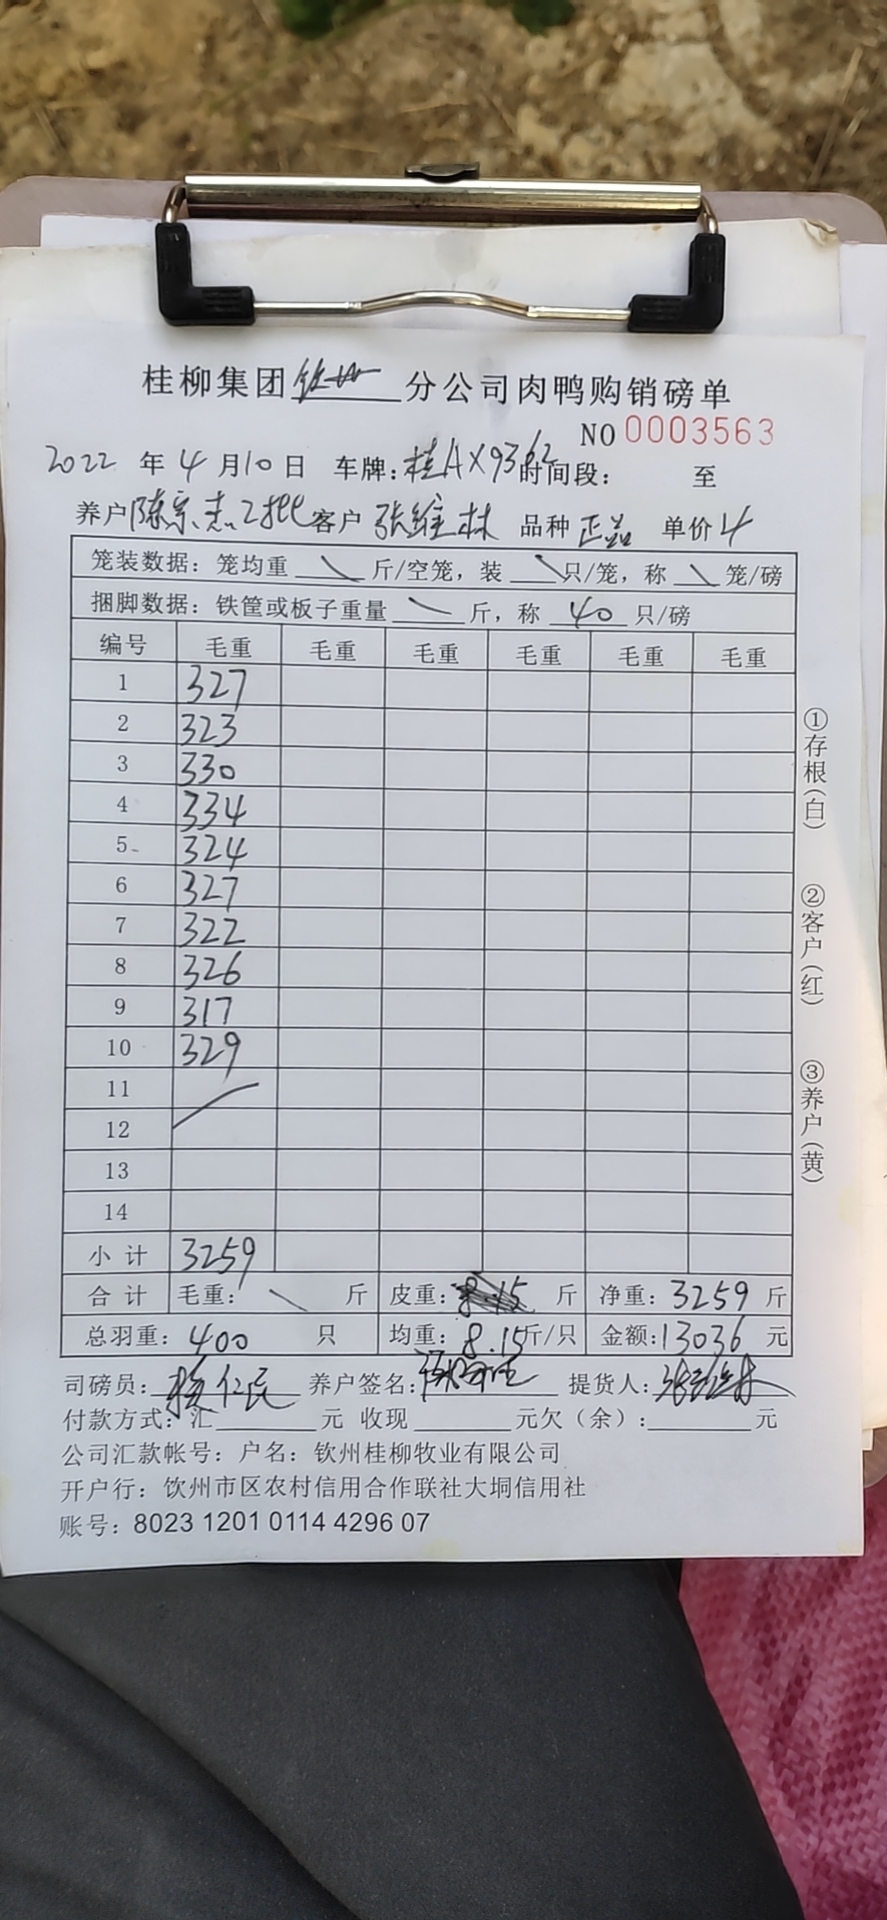 桂柳集团钦州分公司肉鸭购销磅单
NO 0003563
2022 年 4 月 10 日 车牌:桂AX93 时间段: 至
养户 陈宗志 客户 张维林 品种 正品 单价 4
笼装数据: 笼均重 \ 斤/空笼, 装 \ 只/笼, 称 \ 笼/磅
捆脚数据: 铁筐或板子重量 \ 斤, 称 40 只/磅
编号 毛重 毛重 毛重 毛重 毛重 毛重
1 327
2 323
3 330
4 334
5 324
6 327
7 322
8 326
9 317
10 329
11
12
13
14
小 计 3259
合 计 毛重: \ 斤 皮重: 斤 净重: 3259 斤
总羽重: 400 只 均重: 8.15 斤/只 金额: 13036 元
司磅员: 仁民 养户签名: 提货人:
付款方式: 汇 元 收现 元欠(余): 元
公司汇款帐号: 户名: 钦州桂柳牧业有限公司
开户行: 饮州市区农村信用合作联社大垌信用社
账号: 8023 1201 0114 4296 07
①存根(白)
②客户(红)
③养户(黄)